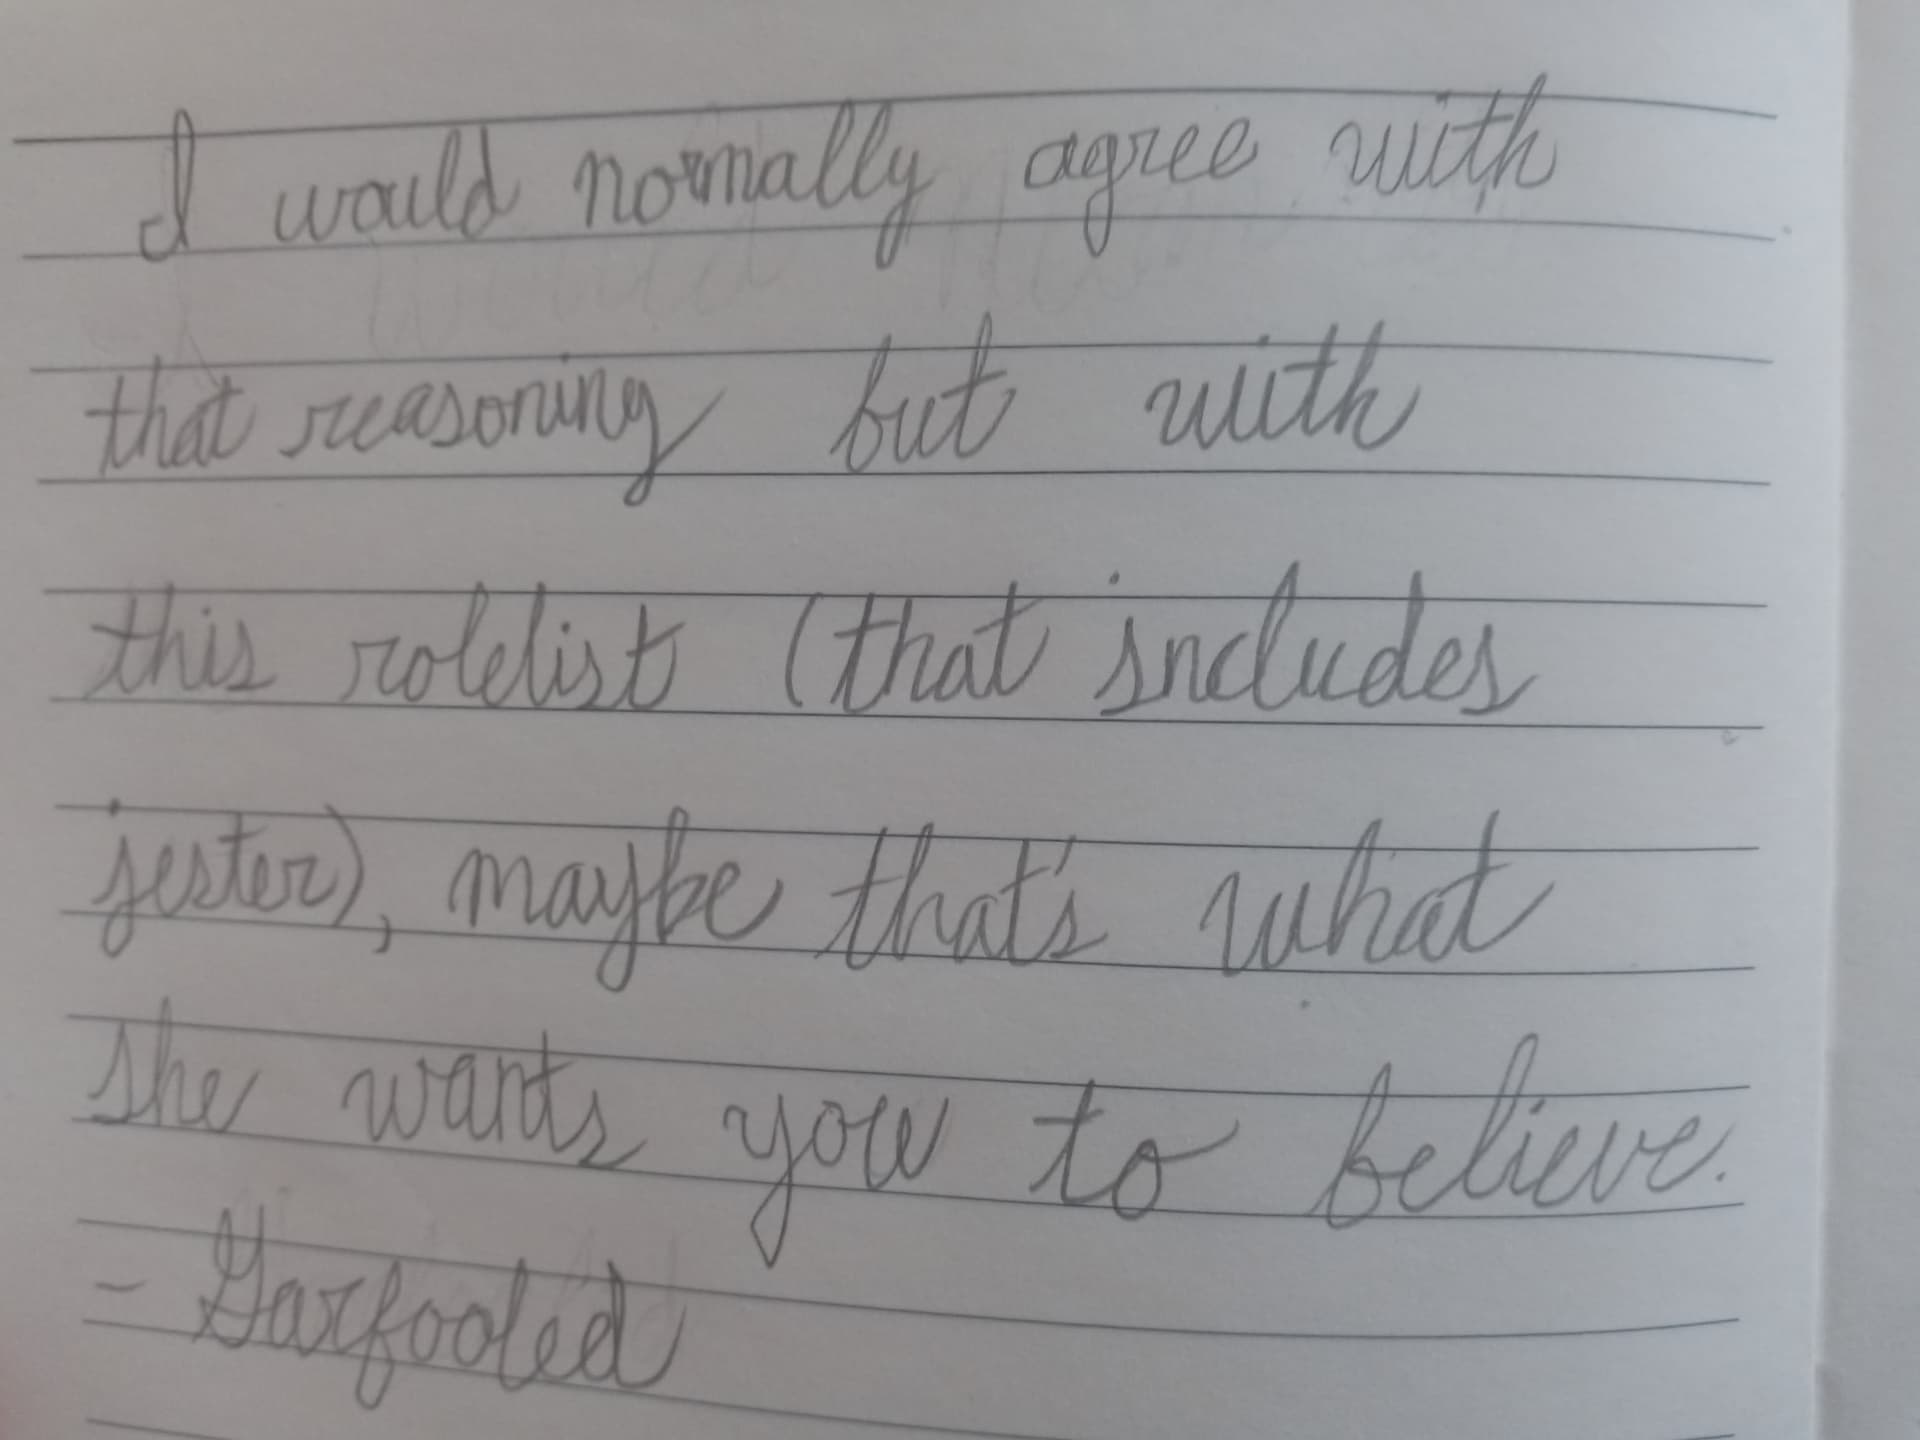 I would normally agree with
that reasoning but with
this rolelist (that includes
jester), maybe that's what
she wants you to believe.
- Garfooled